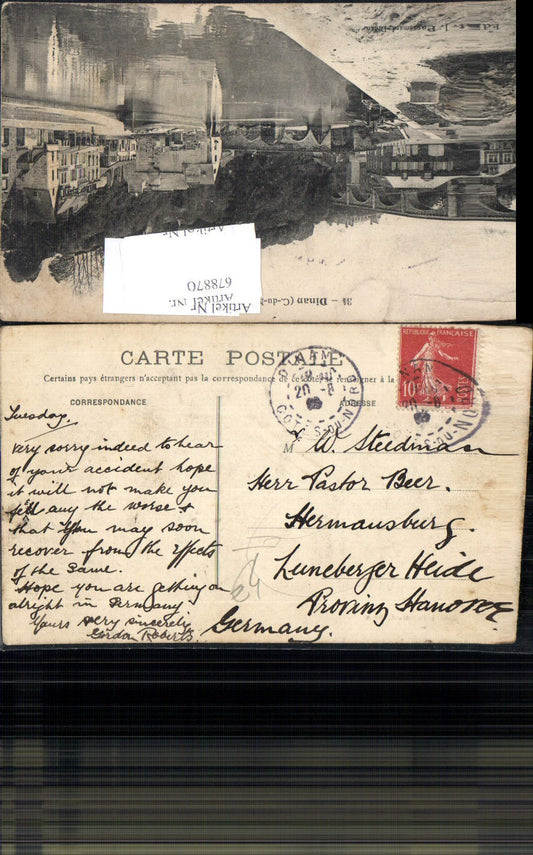 Ed.
678870
Artikel Nr.
Artikel Nr.
34 - Dinan (C.-du-
CARTE POSTALE
Certains pays étrangers n'acceptent pas la correspondance de ce côté, se renseigner à la
CORRESPONDANCE
ADRESSE
RÉPUBLIQUE FRANÇAISE
10
DINAN
COTES-DU-NORD
Tuesday.
Very sorry indeed to hear
of your accident hope
it will not make you
fell any the worse &
that you may soon
recover from the effects
of the same.
Hope you are getting on
alright in Germany
Yours very sincerely
Gordon Roberts
M W. Steedman
Herr Pastor Beer.
Hermansburg.
Luneberger Heide
Provinz Hanover
Germany.